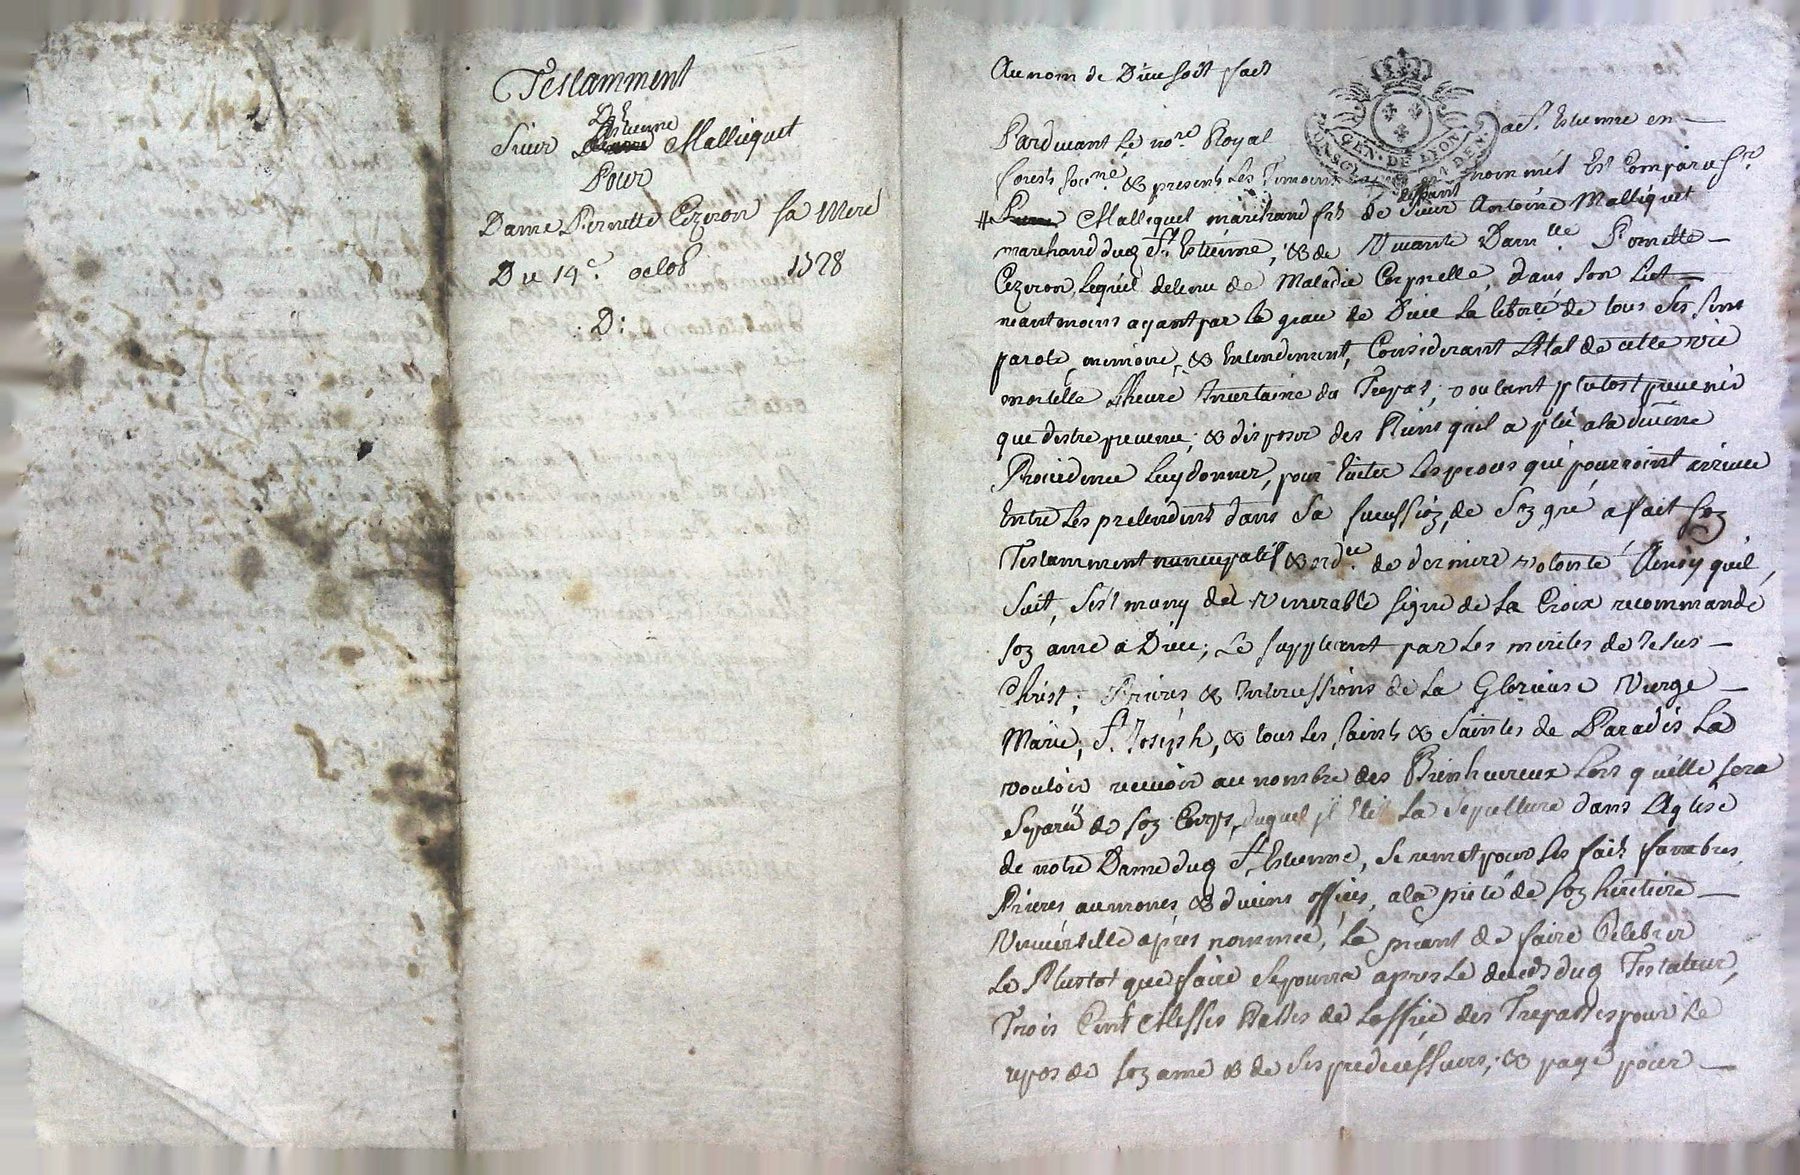 Testamment
De
Estienne
Sieur Malliquet
Pour
Dame Pernette Cezeron sa Mere
Du 14e. octob 1728
: D :
Au nom de Dieu soit fait
Pardevant Le nore Royal a St. Estienne en
forests soune. & presents Les Temoins nommés Est Comparu Sr
deffunt
# Malliquet marchand fils de Sieur Antoine Malliquet
marchand dud St. Estienne, & de Vivante Damlle. Pernette
Cezeron, Lequel detenu de Maladie Corporelle, dans son Lict
neantmoins ayant par la grace de Dieu La liberté de tous Ses sens
parole, memoire, & Entendement, Considerant L'Etat de cette vie
mortelle Lheure Incertaine du Trepas, voulant plutost prevenir
que destre prevenu; & disposer des Biens quil a plû a la divine
Providence Luy donner, pour Eviter Les proces qui pourroint arriver
Entre Les pretendents dans Sa succession, de Son gré a fait son
Testamment nuncupatif & ordce. de derniere volonté Ainsy quil
Suit, S'est muny du Venerable signe de La Croix recommandé
son ame a Dieu; Le suppliant par Les merites de Jesus
Christ; Prieres, & Intercessions de La Glorieuse Vierge
Marie, St. Joseph, & tous Les saints & Saintes de Paradis La
vouloir recevoir au nombre des Bienheureux Lors qu'elle sera
Separée de son Corps, duquel il Elit La Sepulture dans L'Eglise
de notre Dame dud St. Estienne, Se remet pour Ses faits funebres,
Prieres aumones, & divins offices, a la pieté de son heritiere
Universelle apres nommée, La priant de faire Celebrer
Le Plustot que faire Se pourra apres Le deceds dud Testateur,
Trois Cent Messes Basses de Loffice des Trepassés pour Le
repos de son ame & de Ses predecesseurs; & payé pour
GEN. DE LYON